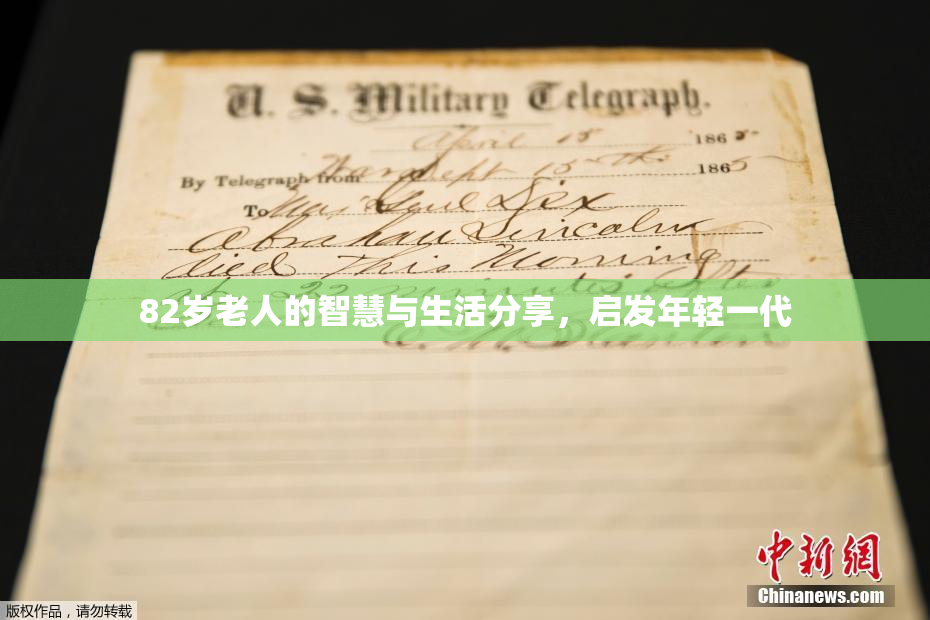 U. S. Military Telegraph.
April 15 1865
By Telegraph from War Dept 15th 1865
To Maj Genl Dix
Abraham Lincoln
died This Morning
at 22 minutes after
82岁老人的智慧与生活分享，启发年轻一代
E. M. Stanton
中新网
Chinanews.com
版权作品，请勿转载